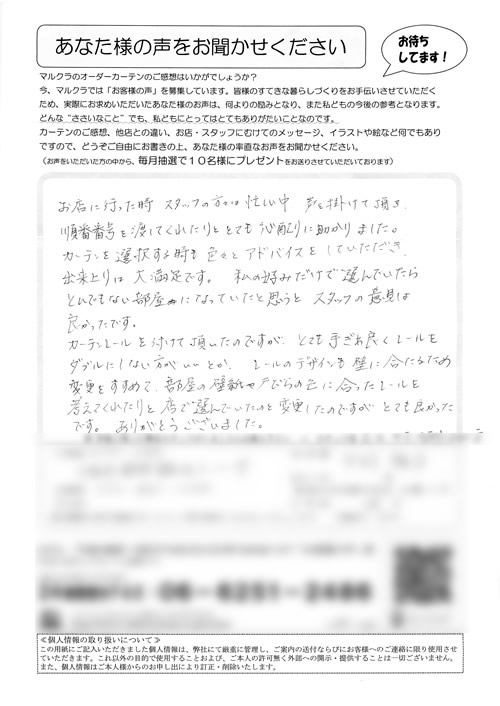 あなた様の声をお聞かせください
お待ち
してます!
マルクラのオーダーカーテンのご感想はいかがでしょうか?
今、マルクラでは「お客様の声」を募集しています。皆様のすてきな暮らしづくりをお手伝いさせていただく
ため、実際にお求めいただいたあなた様のお声は、何よりの励みとなり、また私どもの今後の参考となります。
どんな“ささいなこと”でも、私どもにとってはとてもありがたいことなのです。
カーテンのご感想、他店との違い、お店・スタッフにむけてのメッセージ、イラストや絵など何でもあり
ですので、どうぞご自由にお書きの上、あなた様の率直なお声をお聞かせください。
(お声をいただいた方の中から、毎月抽選で10名様にプレゼントをお送りさせていただいております)
お店に行った時 スタッフの方々は忙しい中 声を掛けて頂き、
順番番号を渡してくれたりととても心配りに助かりました。
カーテンを選択する時も色々とアドバイスをしていただき、
出来上りは大満足です。 私の好みだけで選んでいたら
とんでもない部屋になっていたと思うと スタッフの意見は
良かったです。
カーテンレールを付けて頂いたのですが、とても手ぎわ良くレールを
ダブルにしない方がいいとか、レールのデザインも壁に合たるため
変更をすすめて、部屋の壁紙やとびらの色に合ったレールを
考えてくれたりと店で選んでいたのと変更したのですがとても良かった
です。 ありがとうございました。
06-6251-2486
≪個人情報の取り扱いについて≫
この用紙にご記入いただきました個人情報は、弊社にて厳重に管理し、ご案内の送付ならびにお客様へのご連絡に限り使用させ
ていただきます。これ以外の目的で使用することおよび、ご本人の許可無く外部への開示・提供することは一切ございません。
また、個人情報はご本人様からのお申し出により訂正・削除いたします。